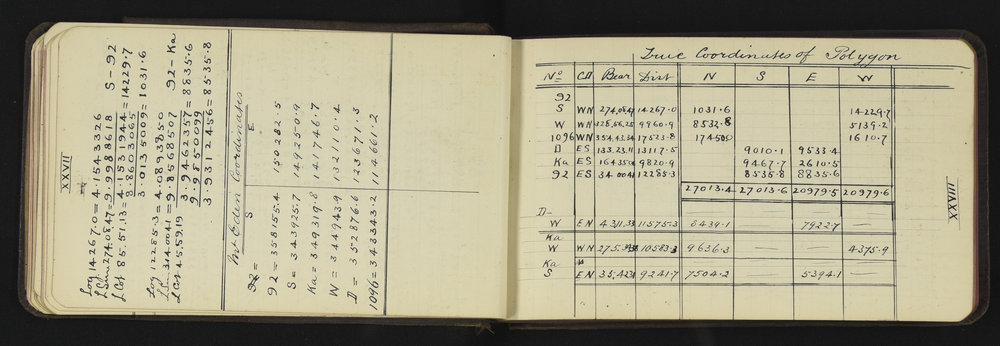 XXVII
Log 14267.0 = 4.1543326 S-92
L Sin 274.08.47 = 9.9988618
4.1531944 = 14229.7
L Cot 85.51.13 = 8.8603065
3.0135009 = 1031.6
Log 12285.3 = 4.0893850 92-Ka
L 314.00.41 = 9.8568507
3.9462357 = 8835.6
L Cot 45.59.19 9.9850099
3.9312456 = 8535.8
Mt Eden Coordinates
S E
92 =
92 = 358155.4 150282.5
S = 343925.7 149250.9
Ka = 349319.8 141746.7
W = 344943.9 132110.4
D = 352876.6 123671.3
1096 = 343343.2 114661.2
XXVIII
True Coordinates of Polygon
No CD Bear Dist N S E W
92
S WN 274.08.47 14267.0 1031.6 14229.7
W WN 328.56.25 9960.9 8532.8 5139.2
1096 WN 354.43.34 17523.8 17450.0 1610.7
D ES 133.23.11 13117.5 9010.1 9533.4
Ka ES 164.35.04 9820.9 9467.7 2610.5
92 ES 314.00.41 12285.3 8535.8 8835.6
27013.4 27013.6 20979.5 20979.6
D-
W EN 43.11.33 11575.3 8439.1 — 7922.7
Ka
W WN 10583.3 9636.3 — — 4375.9
Ka
S EN 35.42.31 9241.7 7504.2 — 5394.1 —